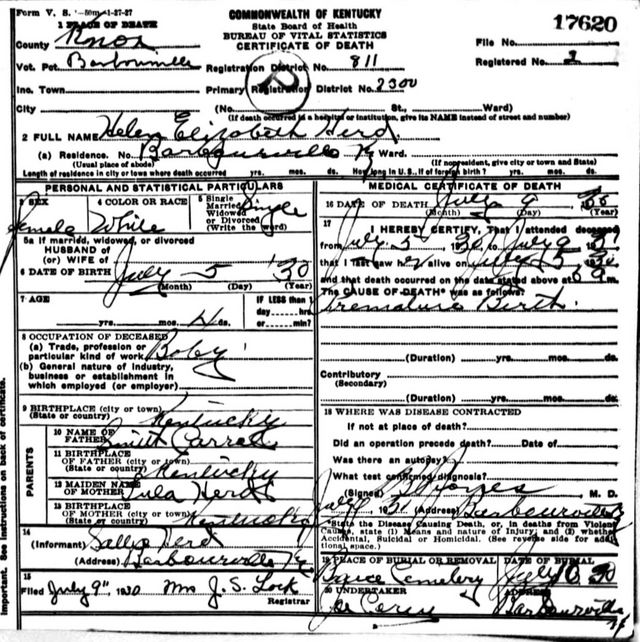 Form V. S. 1-50m-1-27-27
COMMONWEALTH OF KENTUCKY
State Board of Health
BUREAU OF VITAL STATISTICS
CERTIFICATE OF DEATH
17620
1 PLACE OF DEATH
County Knox
File No.
Vot. Pct. Barbourville Registration District No. 811 Registered No.
Inc. Town Primary Registration District No. 2300
City (No. St., Ward)
(If death occurred in a hospital or institution, give its NAME instead of street and number)
2 FULL NAME Helen Elizabeth Herd
(a) Residence. No. Barbourville Ky Ward.
(Usual place of abode) (If nonresident, give city or town and State)
Length of residence in city or town where death occurred yrs. mos. ds. How long in U.S., if of foreign birth? yrs. mos. ds.
PERSONAL AND STATISTICAL PARTICULARS
3 SEX 4 COLOR OR RACE 5 Single Married Widowed or Divorced (Write the word)
Female White Single
5a If married, widowed, or divorced
HUSBAND of
(or) WIFE of
6 DATE OF BIRTH July 5 '30
(Month) (Day) (Year)
7 AGE IF LESS than 1
yrs. mos. 4 ds. day hrs. or min?
8 OCCUPATION OF DECEASED
(a) Trade, profession or
particular kind of work Baby
(b) General nature of industry,
business or establishment in
which employed (or employer)
9 BIRTHPLACE (city or town)
(State or country) Kentucky
PARENTS
10 NAME OF
FATHER Smith
11 BIRTHPLACE
OF FATHER (city or town)
(State or country) Kentucky
12 MAIDEN NAME
OF MOTHER Lula Herd
13 BIRTHPLACE
OF MOTHER (city or town)
(State or country) Kentucky
14
(Informant) Herd
(Address) Barbourville Ky
15
Filed July 9" 1930 Mrs J. S. Lock
Registrar
MEDICAL CERTIFICATE OF DEATH
16 DATE OF DEATH July 9 30
(Month) (Day) (Year)
17
I HEREBY CERTIFY, That I attended deceased
from July 5 to July 9
that I last saw her alive on July
and that death occurred on the date stated above at
The CAUSE OF DEATH* was as follows:
Premature Birth
(Duration) yrs. mos. ds.
Contributory
(Secondary)
(Duration) yrs. mos. ds.
18 WHERE WAS DISEASE CONTRACTED
If not at place of death?
Did an operation precede death? Date of
Was there an autopsy?
What test confirmed diagnosis?
(Signed) M. D.
(Address) Barbourville
*State the Disease Causing Death, or, in deaths from Violent
Causes, state (1) Means and nature of Injury; and (2) whether
Accidental, Suicidal or Homicidal. (See reverse side for addi-
tional space.)
19 PLACE OF BURIAL OR REMOVAL DATE OF BURIAL
Cemetery July 10 30
20 UNDERTAKER ADDRESS
Barbourville Ky
Important. See instructions on back of certificate.